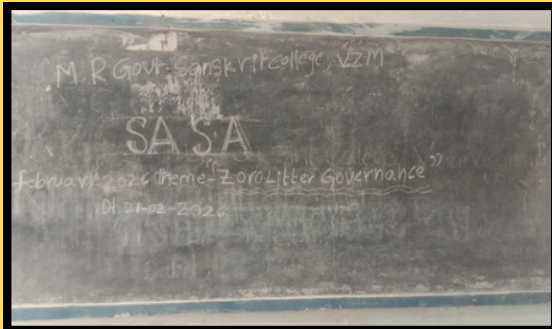 M. R Govt. Sanskrit college, VZM
SA S A
February 2026 Theme - "Zoro Litter Governance"
Dt. 21-02-2026